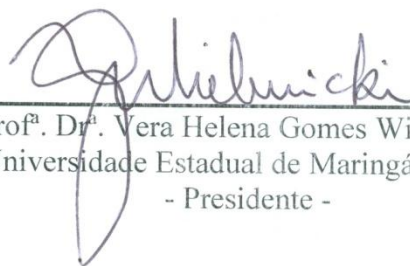 rofª. Drª. Vera Helena Gomes Wi
niversidade Estadual de Maringá
- Presidente -